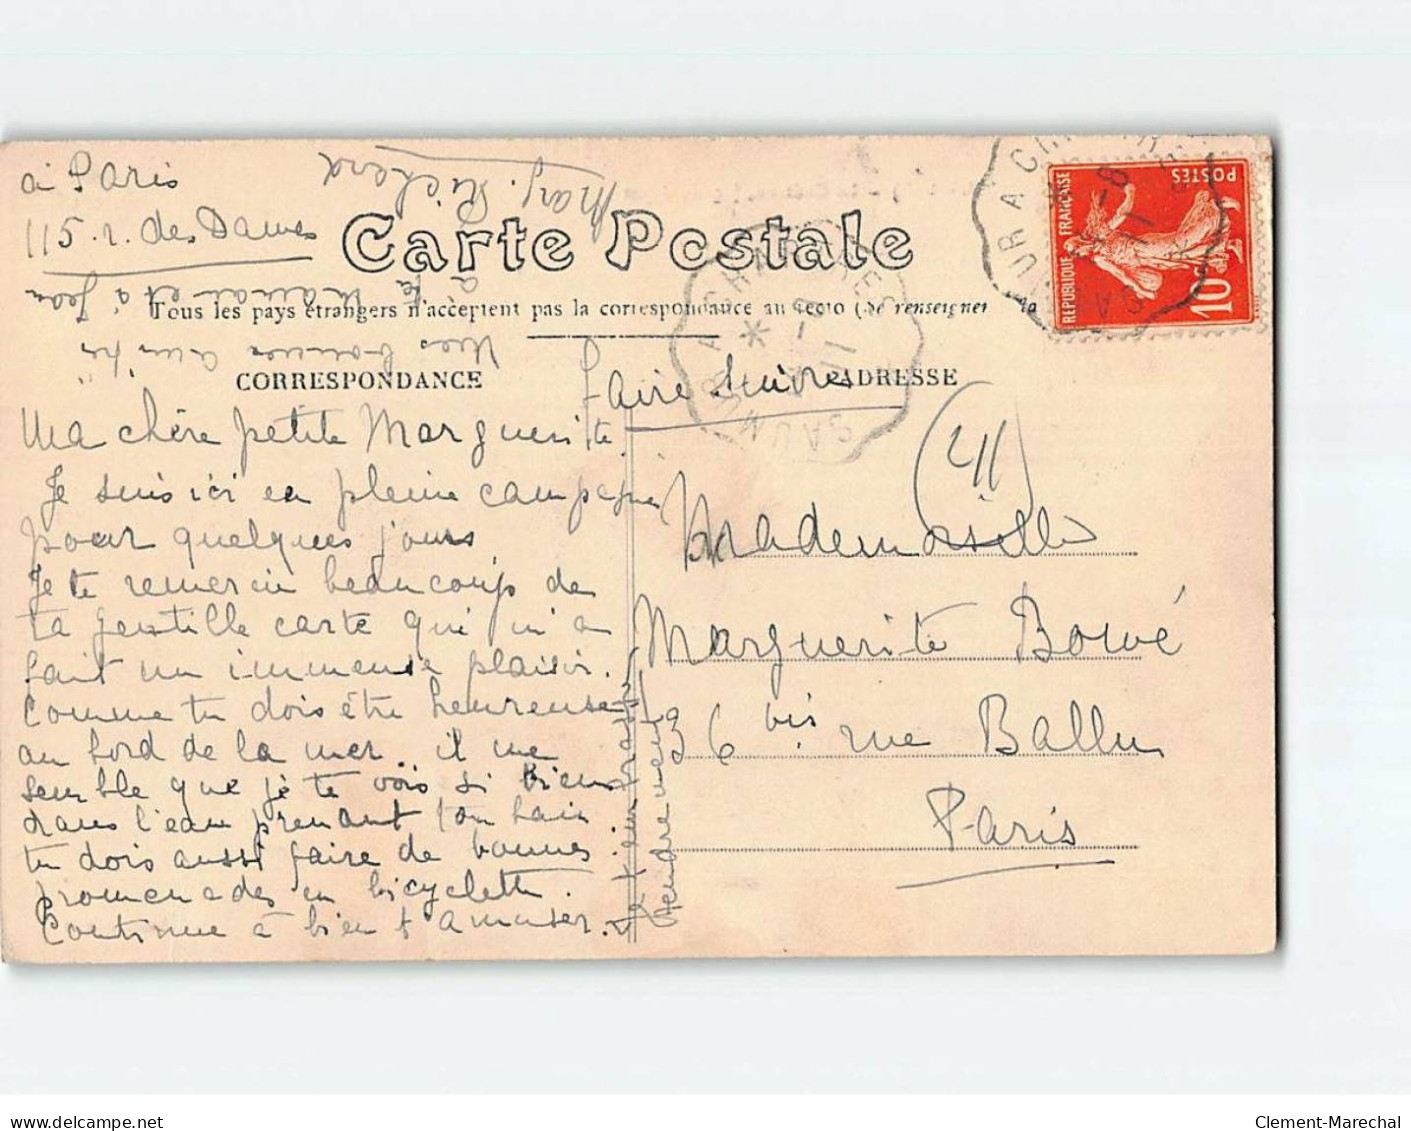 à Paris
115. r. des Dames
Carte Postale
Tous les pays étrangers n'acceptent pas la correspondance au recto (Se renseigner
CORRESPONDANCE
ADRESSE
Faire Suivre
Ma chère petite Marguerite.
Je suis ici en pleine campagne
pour quelques jours
Je te remercie beaucoup de
ta gentille carte qui m'a
fait un immense plaisir.
Comme tu dois être heureuse
au bord de la mer. il me
semble que je te vois si bien
dans l'eau prenant ton bain.
tu dois aussi faire de bonnes
promenades en bicyclette.
Continue à bien t'amuser.
Je t'embrasse
tendrement
Mes bonnes
à ta Maman et à Jean
Marg. Richard
SAUMUR A CHARTRES
SAUMUR A
REPUBLIQUE FRANÇAISE
POSTES
10
Mademoiselle
Marguerite
36 bis rue Ballu
Paris
delcampe.net
Clement-Marechal